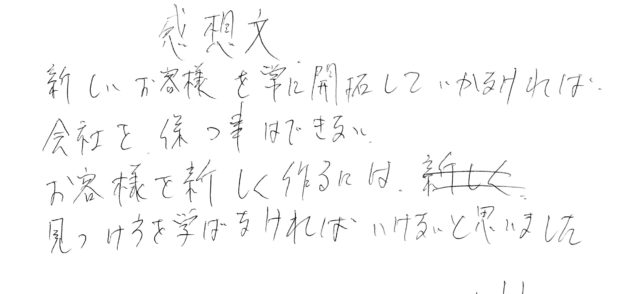 感想文
新しいお客様を常に開拓していかなければ、
会社を保つ事はできない。
お客様を新しく作るには、新しく
見つけ方を学ばなければいけないと思いました